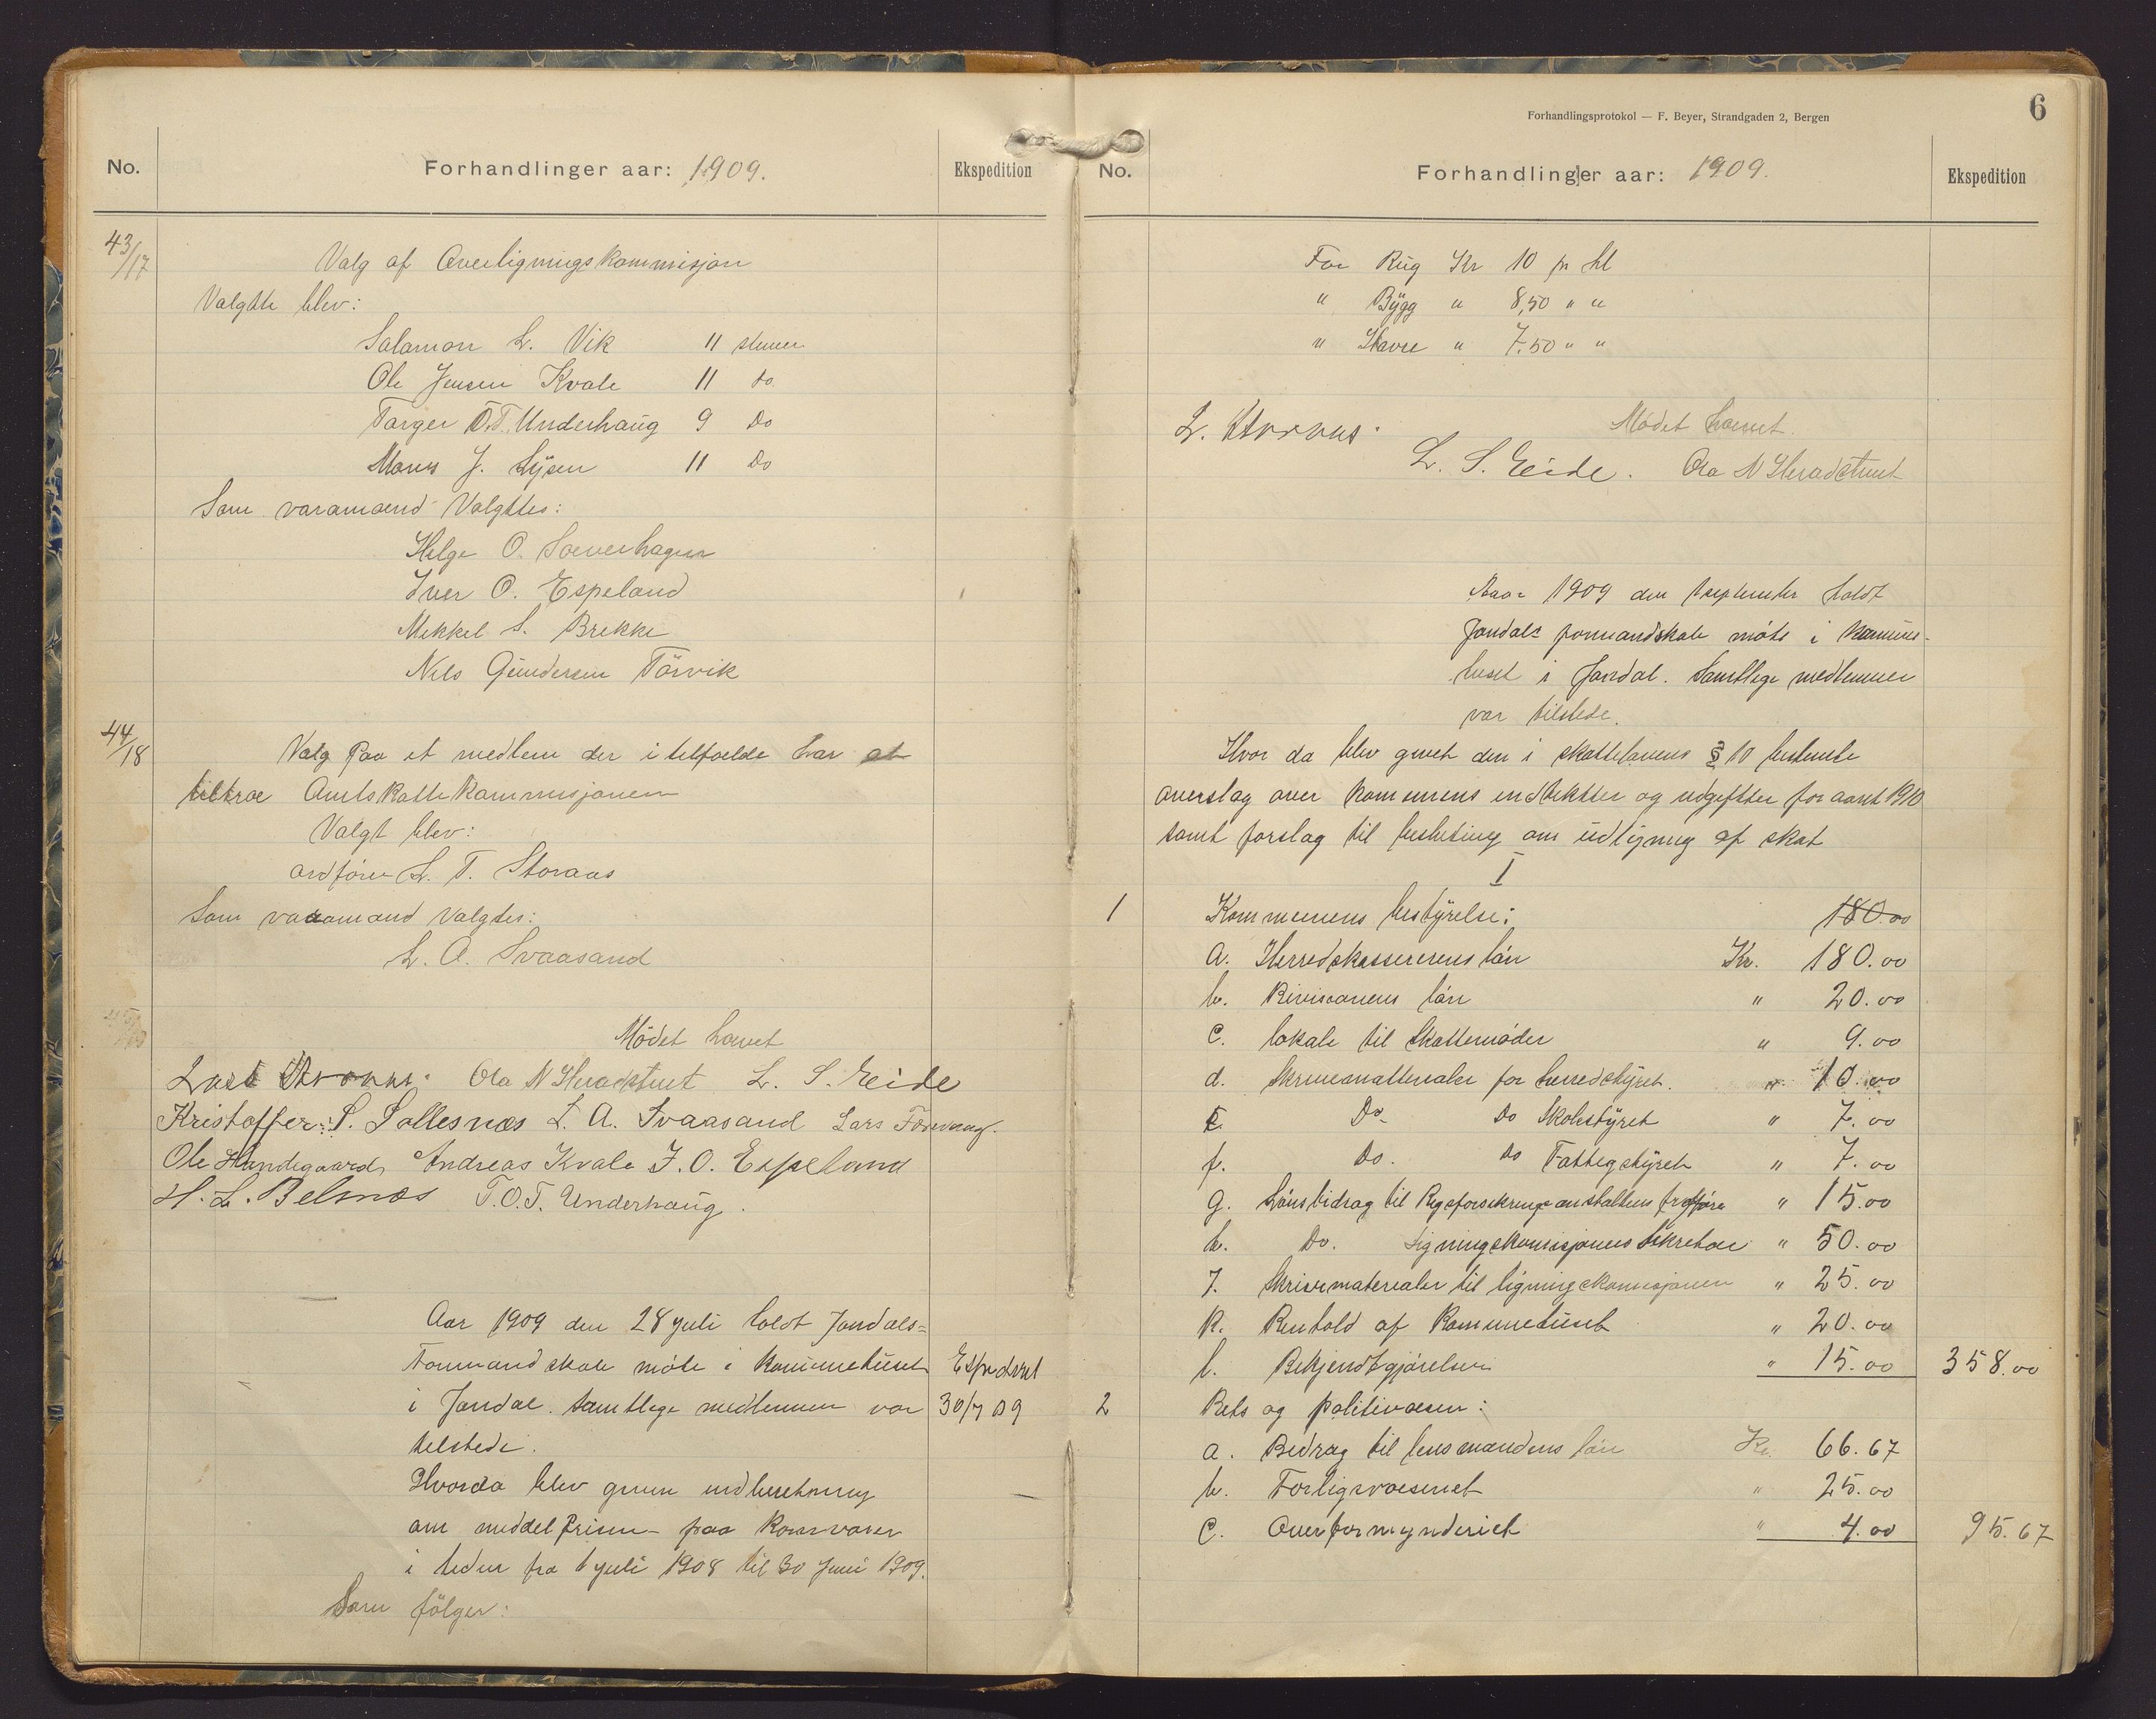 No.
Forhandlinger aar: 1909.
Ekspedition
43/17
Valg af Overligningskommisjon
Valgtte blev:
Salamon L. Vik 11 stemer
Ole Jensen Kvale 11 do
Torger O.T. Underhaug 9 Do
Mons J. Lysen 11 Do
Som varamænd Valgttes:
Helge O. Sæverhagen
Iver O. Espeland
Mikkel S. Brekke
Nils Gundersen Törvik
44/18
Valg paa et medlem der i telfælde har at
tiltræ Amtskattekommisjonen
Valgt blev:
ordförer L. T. Storaas
Som varamand valgtes:
L. A. Svaasand
Mödet hævet
Lars Storaas. Ola N Heradstveit L. S. Eide
Kristoffer S. Sollesnæs L. A. Svaasand Lars
Ole Handegaard Andreas Kvale I. O. Espeland
H. L. Belsnæs T. O. T. Underhaug.
Aar 1909 den 28 juli holdt Jondals-
Formandskab möte i Kommunehuset
i Jondal. Samtlege medlemmer var
telstede.
Hvorda blev given indberetning
om middelprisen paa Kornvarer
i tiden fra 1 juli 1908 til 30 Juni 1909.
Som fölger:
30/7 09
Forhandlingsprotokol — F. Beyer, Strandgaden 2, Bergen
6
No.
Forhandlinger aar: 1909.
Ekspedition
For Rug Kr 10 pr hl
" Bygg " 8,50 " "
" Havre " 7.50 " "
Mödet hævet.
L. Storaas.
L. S. Eide. Ola N Heradstveit
Aar 1909 den september holdt
Jondals formandskab möte i Kommune-
huset i Jondal. Samtlege medlemmer
var tilstede.
Hvor da blev givet den i skattelovens § 10 bestemte
overslag over kommunens indtekter og udgiftter for aaret 1910
samt forslag til beslutning om udligning af skat
I
1
Kommunens bestyrelse: 180.00
a. Herredskassererens lön Kr. 180.00
b. Revisorens lön " 20.00
c. Lokale til Skattemöder " 9.00
d. Skrivematterialer for herredstyret. " 10.00
e. Do. Do Skolestyret " 7.00
f. Do. Do Fattegstyret " 7.00
g. Lönsbidrag til Rygsforsekringsanstaltens " 15.00
h. Do. Ligningskomisjonens Sekretær " 50.00
J. Skrivematerialer til ligningskomisjonen " 25.00
K. Renhold af Kommunehuset " 20.00
l. Bekjendtgjörelser " 15.00 358.00
2
Rets og politivæsen:
a. Bidrag til lensmandens lön Kr. 66.67
b. Forligsvæsenet " 25.00
c. Overformynderiet " 4.00 95.67